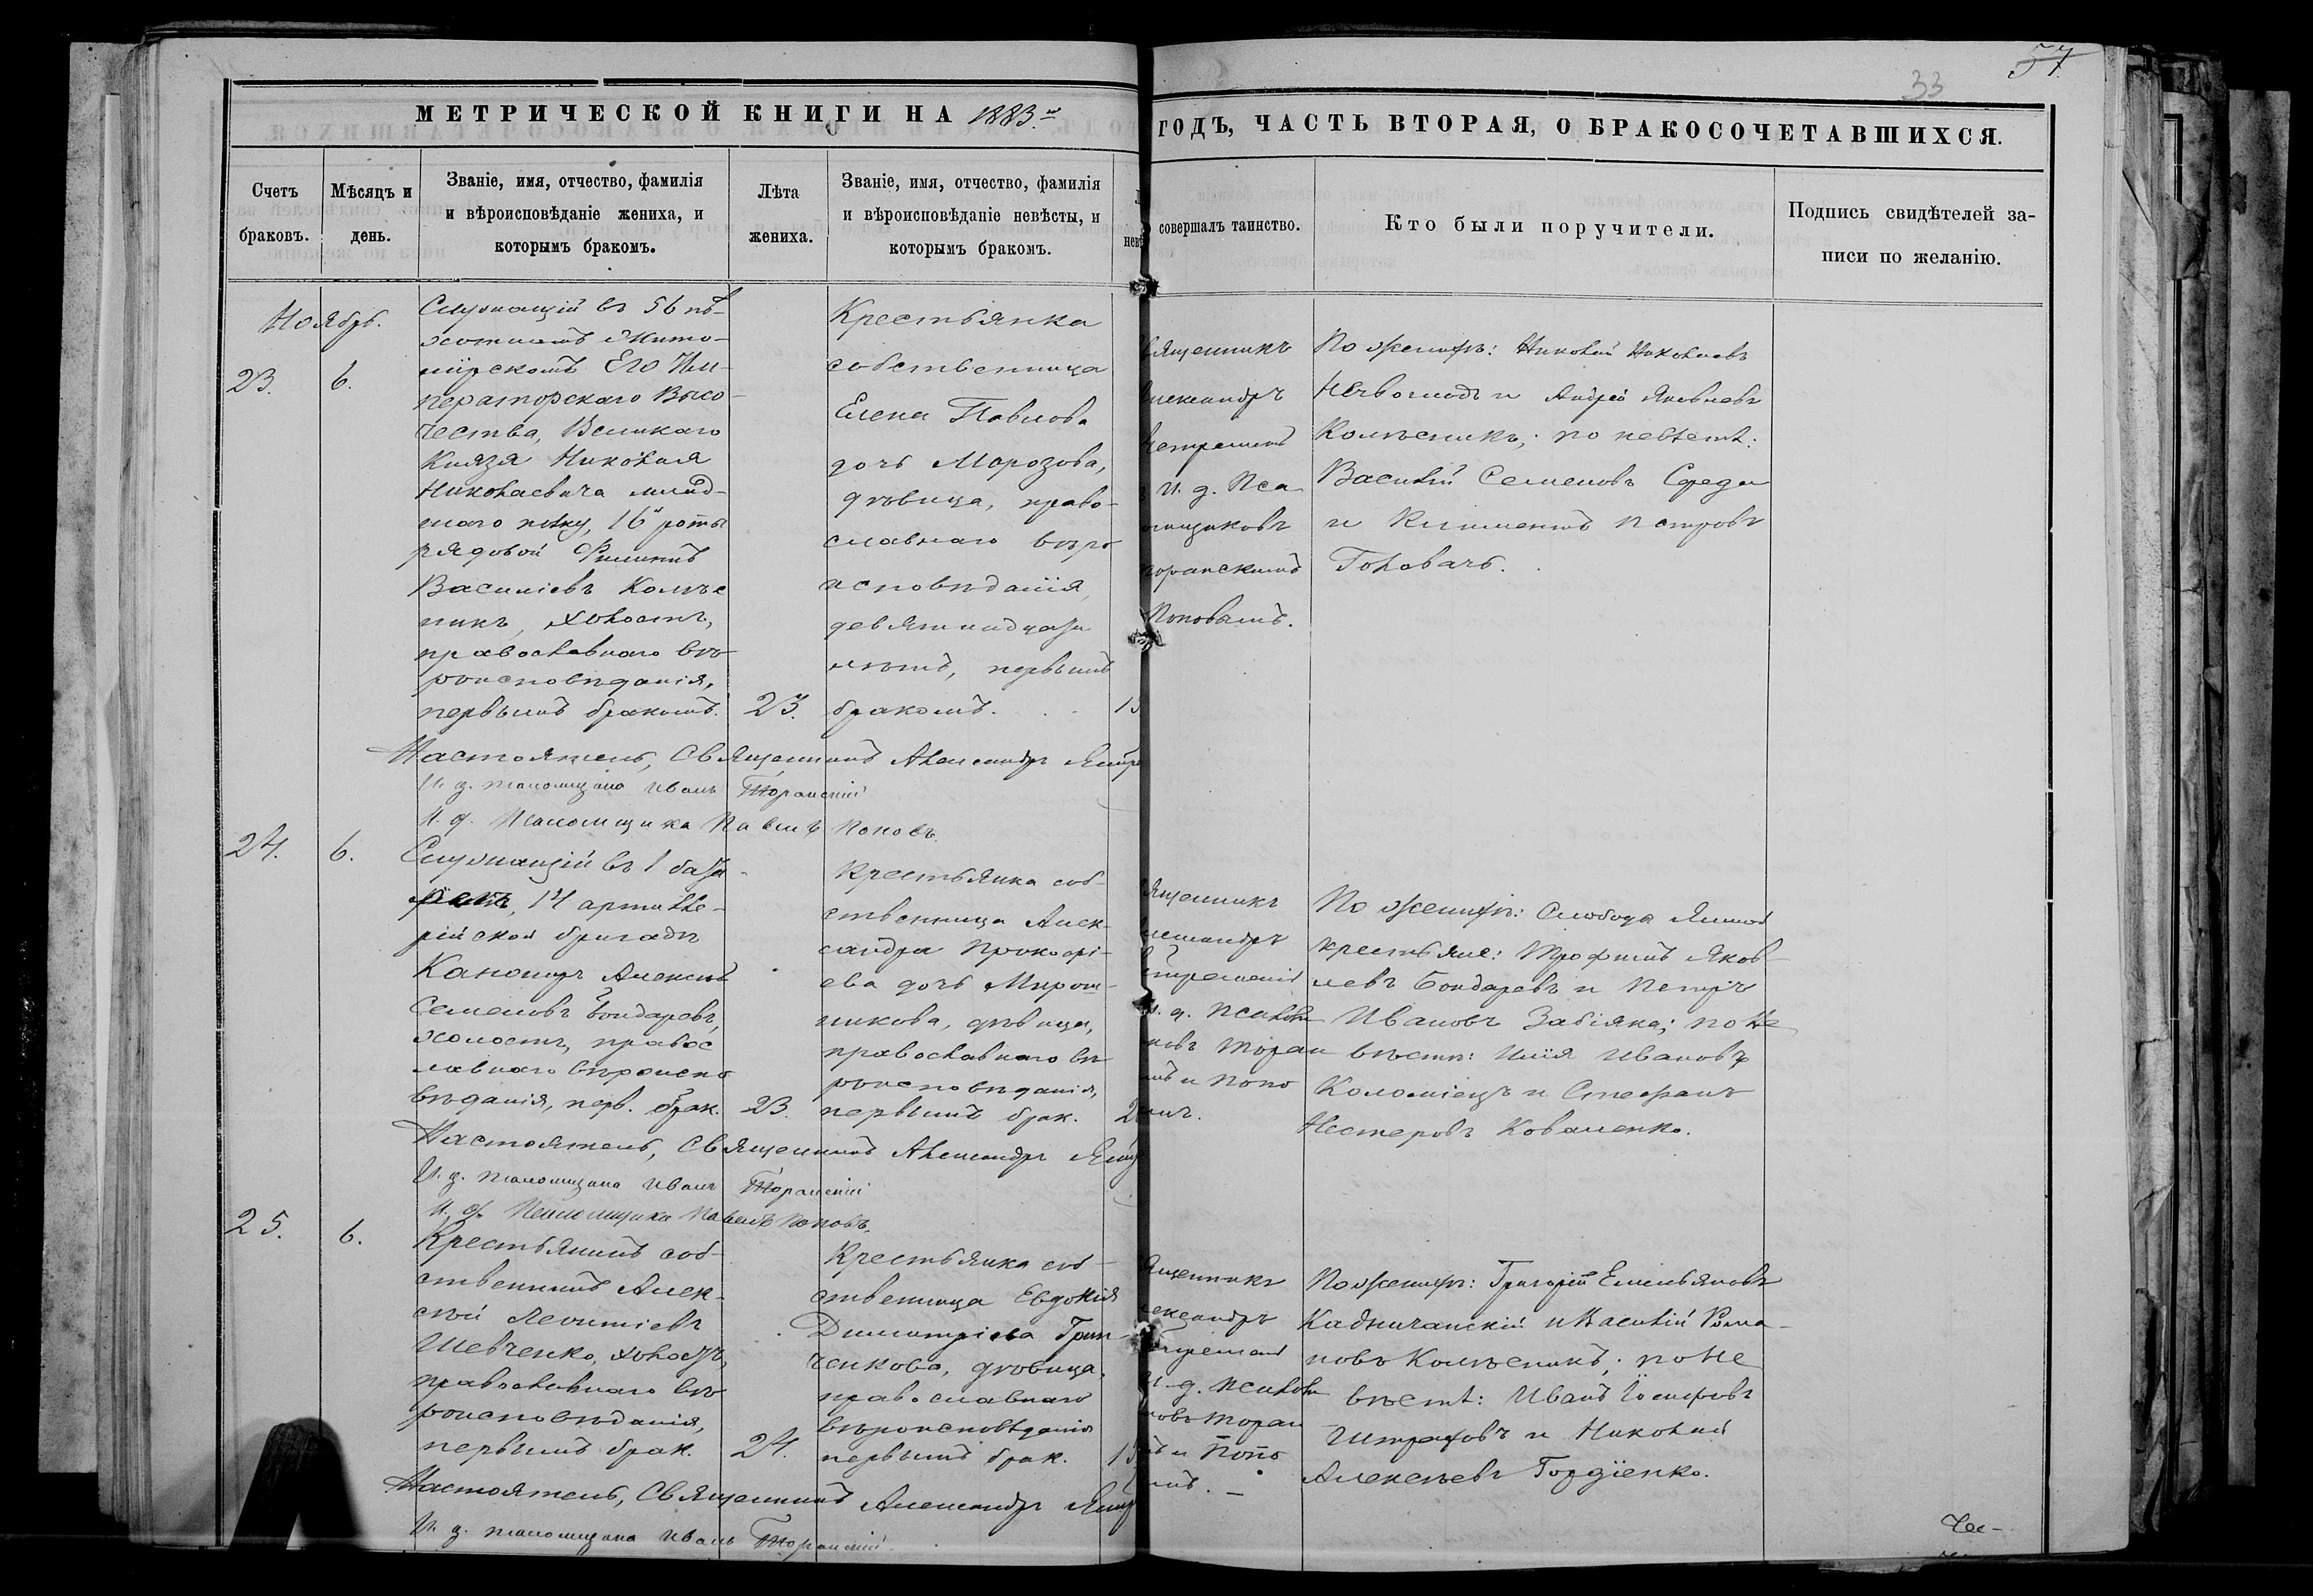 57
33
МЕТРИЧЕСКОЙ КНИГИ НА 1883.
ГОДЪ, ЧАСТЬ ВТОРАЯ, О БРАКОСОЧЕТАВШИХСЯ.
Счетъ
браковъ.
Мѣсяцъ и
день.
Званіе, имя, отчество, фамилія
и вѣроисповѣданіе жениха, и
которымъ бракомъ.
Лѣта
жениха.
Званіе, имя, отчество, фамилія
и вѣроисповѣданіе невѣсты, и
которымъ бракомъ.
совершалъ таинство.
Кто были поручители.
Подпись свидѣтелей за-
писи по желанію.
Ноябрь.
23.
6.
Служащій въ 56 пѣ-
хотномъ Жито-
мірскомъ Его Им-
ператорскаго Высо-
чества, Великаго
Князя Николая
Николаевича млад-
шаго полку, 16й роты
рядовой Филиппъ
Василіевъ Колѣс
никъ, холостъ,
православнаго вѣ-
роисповѣданія,
первымъ бракомъ.
23.
Крестьянка
собственница
Елена Павлова
дочь Морозова,
дѣвица, право-
славнаго вѣро
исповѣданія,
девятнадцати
лѣтъ, первымъ
бракомъ.
священникъ
Александръ
и. д. Пса
ломщиковъ
Торанскимъ
Поповымъ.
По женихѣ: Николай Николаевъ
и Андрей Яковлевъ
Колѣсникъ; по невѣстѣ:
Василій Семеновъ Середа
и Климентъ Петровъ
Головачъ.
Настоятель, Священникъ Александръ
И. д. псаломщика Иванъ Торанскій
И. д. Псаломщика Павелъ Поповъ.
24.
6.
Служащій въ 1 бата
реѣ, 14 артилле-
рійской бригады
Канониръ Алексѣй
Семеновъ Бондаревъ,
холостъ, правос
лавнаго вѣроиспо
вѣданія, перв. брак.
23.
Крестьянка соб-
ственница Алек-
сандра Прокофі-
ева дочь Мирош-
никова, дѣвица,
православнаго вѣ
роисповѣданія,
первымъ брак.
священникъ
Александръ
и. д. псалом
ковъ Торан
мъ и Попо
По женихѣ: Слобода
крестьяне: Трофимъ Яков-
левъ Бондаревъ и Петръ
Ивановъ Забіяка; по не
вѣстѣ: Илія Ивановъ
Коломіецъ и Стефанъ
Нестеровъ Коваленко.
Настоятель, Священникъ Александръ
И. д. псаломщика Иванъ Торанскій
И. д. Псаломщика Павелъ Поповъ.
25.
6.
Крестьянинъ соб-
ственникъ Алек-
сѣй Леонтіевъ
Шевченко, холостъ,
православнаго вѣ
роисповѣданія,
первымъ брак.
24.
Крестьянка соб-
ственница Евдокія
Димитріева Грин-
ченкова, дѣвица,
православнаго
вѣроисповѣданія
первымъ брак.
священникъ
Александръ
и. д. псалом
ковъ Торан
мъ и Попо
По женихѣ: Григорій Емельяновъ
и Василій Рома-
новъ Колѣсникъ; по не
вѣстѣ: Иванъ Іосифовъ
и Николай
Алексѣевъ Гордіенко.
Настоятель, Священникъ Александръ
И. д. псаломщика Иванъ Торанскій